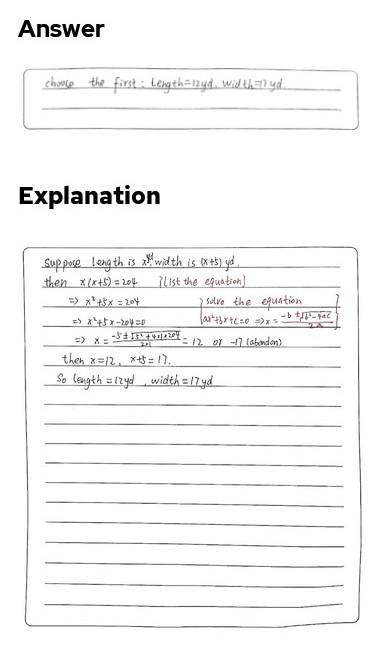 Answer
choose the first: length=12yd. width=17yd.
Explanation
Suppose length is x yd, width is (x+5) yd.
then x(x+5)=204 {list the equation}
=> x²+5x=204 } solve the equation
=> x²+5x-204=0 ax²+bx+c=0 => x = (-b±√(b²-4ac))/2a
=> x = (-5±√(5²+4×1×204))/2×1 = 12 or -17 (abandon)
then x=12, x+5=17.
So length=12yd, width=17yd